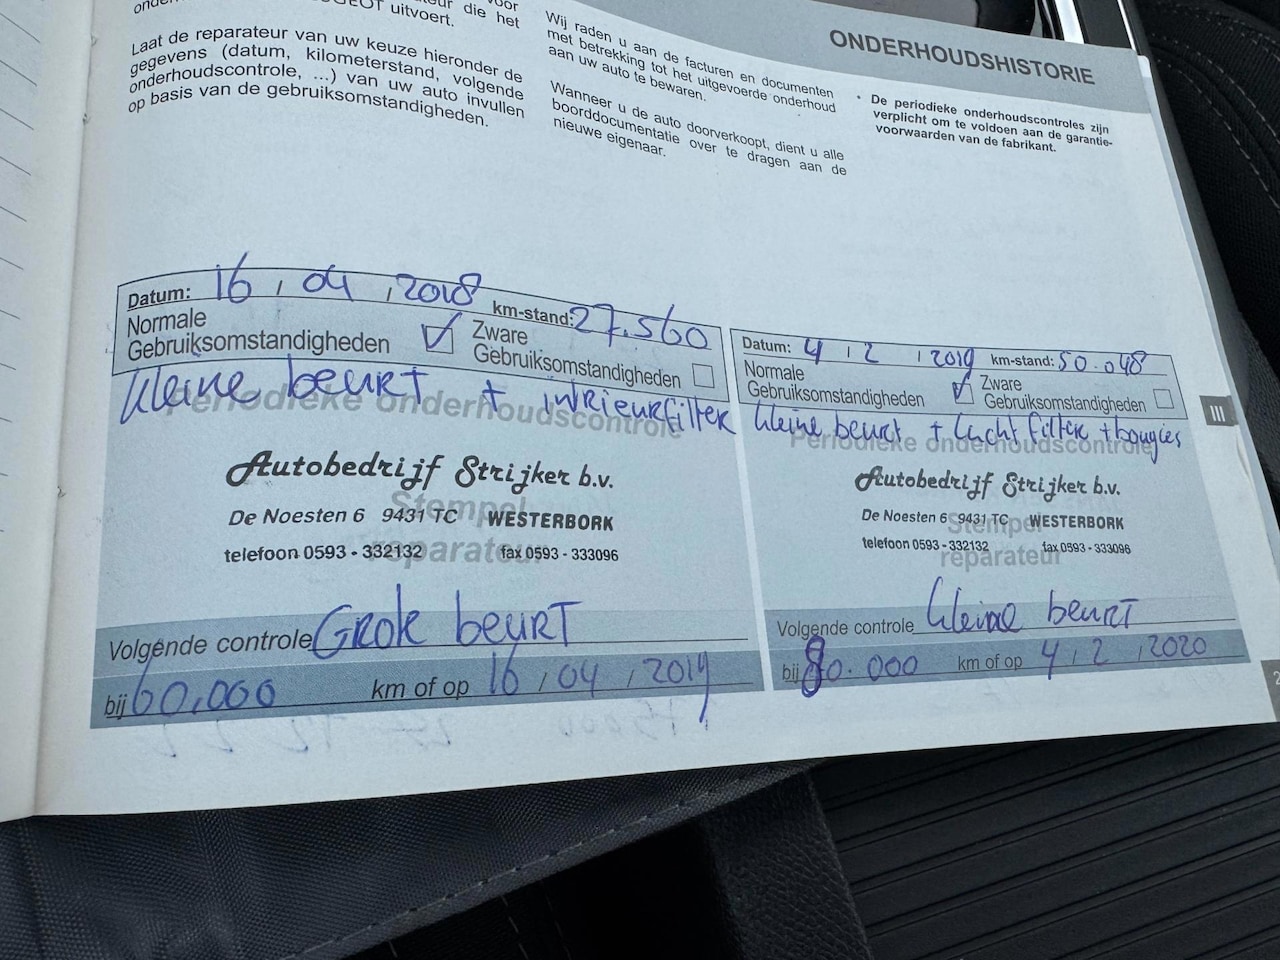 uitvoert.
Laat de reparateur van uw keuze hieronder de
gegevens (datum, kilometerstand, volgende
onderhoudscontrole, ...) van uw auto invullen
op basis van de gebruiksomstandigheden.
Wij raden u aan de facturen en documenten
met betrekking tot het uitgevoerde onderhoud
aan uw auto te bewaren.
Wanneer u de auto doorverkoopt, dient u alle
boorddocumentatie over te dragen aan de
nieuwe eigenaar.
ONDERHOUDSHISTORIE
• De periodieke onderhoudscontroles zijn
verplicht om te voldoen aan de garantie-
voorwaarden van de fabrikant.
Datum: 16 / 04 / 2018 km-stand: 27.560
Normale
Gebruiksomstandigheden
Zware
Gebruiksomstandigheden
kleine beurt + intrieurfilter
Periodieke onderhoudscontrole
Autobedrijf Strijker b.v.
Stempel
De Noesten 6 9431 TC WESTERBORK
reparateur
telefoon 0593 - 332132 fax 0593 - 333096
Volgende controle Grote beurt
bij 60.000 km of op 16 / 04 / 2019
Datum: 4 / 2 / 2019 km-stand: 50.048
Normale
Gebruiksomstandigheden
Zware
Gebruiksomstandigheden
kleine beurt + lucht filter + bougies
Periodieke onderhoudscontrole
Autobedrijf Strijker b.v.
De Noesten 6 9431 TC WESTERBORK
Stempel
telefoon 0593 - 332132 fax 0593 - 333096
reparateur
Volgende controle kleine beurt
bij 80.000 km of op 4 / 2 / 2020
III
2